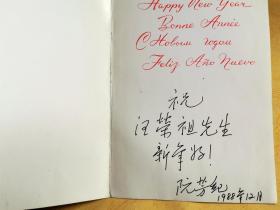 Happy New Year
Bonne Année
С Новым годом
Feliz Año Nuevo
祝
汪榮祖先生
新年好!
阮芳纪
1988年12月